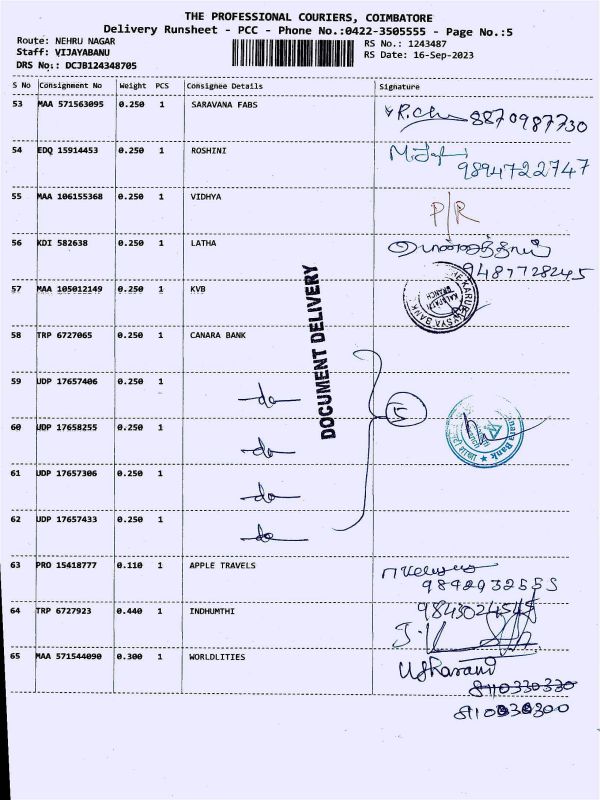 THE PROFESSIONAL COURIERS, COIMBATORE
Delivery Runsheet - PCC - Phone No.:0422-3505555 - Page No.:5
Route: NEHRU NAGAR
Staff: VIJAYABANU
DRS No.: DCJB124348705
RS No.: 1243487
RS Date: 16-Sep-2023
S No Consignment No Weight PCS Consignee Details Signature
53 MAA 571563095 0.250 1 SARAVANA FABS 8870987730
54 EDQ 15914453 0.250 1 ROSHINI
9894722747
55 MAA 106155368 0.250 1 VIDHYA P/R
56 KDI 582638 0.250 1 LATHA
9487728245
57 MAA 105012149 0.250 1 KVB
58 TRP 6727065 0.250 1 CANARA BANK
DOCUMENT DELIVERY
59 UDP 17657406 0.250 1 do 5
60 UDP 17658255 0.250 1 do
61 UDP 17657306 0.250 1 do
62 UDP 17657433 0.250 1 do
63 PRO 15418777 0.110 1 APPLE TRAVELS
9842932555
64 TRP 6727923 0.440 1 INDHUMTHI
65 MAA 571544090 0.300 1 WORLDLITIES
8110330330